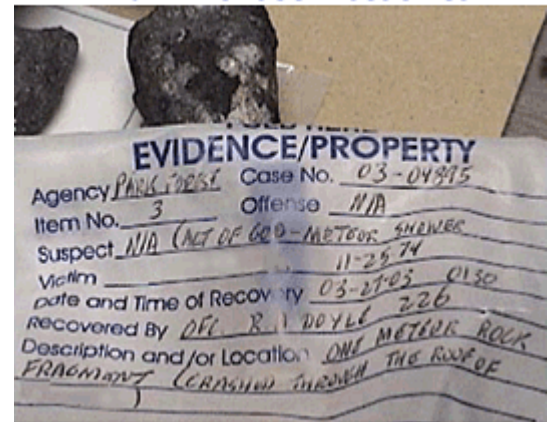 EVIDENCE/PROPERTY
Agency PARK FOREST Case No. 03-04895
Item No. 3 Offense N/A
Suspect N/A (ACT OF GOD - METEOR SHOWER
Victim 11-25 74
Date and Time of Recovery 03-27-03 0130
Recovered By OFC. R. DOYLE 226
Description and/or Location ONE METEOR ROCK
FRAGMANT (CRASHED THROUGH THE ROOF OF
)